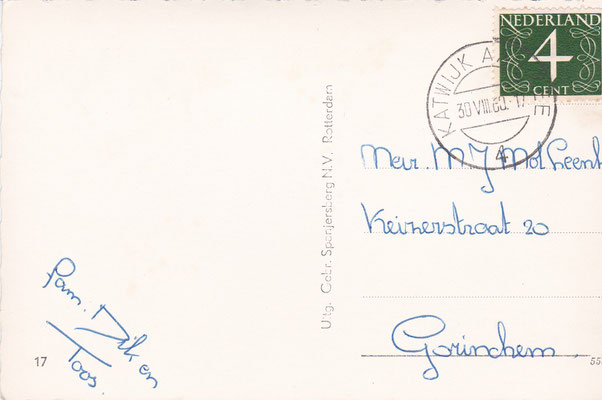 NEDERLAND
4
CENT
KATWIJK A
30 VIII.60.-17
4
Mej. M J
Keizerstraat 20
Gorinchem.
Uitg. Gebr. Spanjersberg N.V. Rotterdam
Fam. Dik en
Toos
17
55